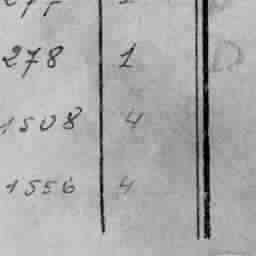 278 1
1508 4
1556 4